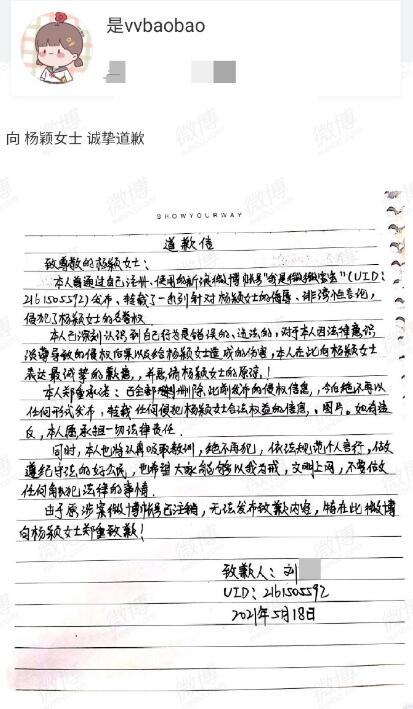 是vvbaobao
向 杨颖女士 诚挚道歉
SHOWYOURWAY
道歉信
致尊敬的杨颖女士：
本人曾通过自己注册、使用的新浪微博账号"我是微微宝宝"（UID：
2161505592）发布、转载了一系列针对杨颖女士的侮辱、诽谤性言论，
侵犯了杨颖女士的名誉权.
本人已深刻认识到自己行为是错误的、违法的，对于本人因法律意识
淡薄导致的侵权后果以及给杨颖女士造成的伤害，本人在此向杨颖女士
表达最诚挚的歉意，并恳请杨颖女士的原谅！
本人郑重承诺：已全部删除此前发布的侵权信息，今后绝不再以
任何形式发布，转载任何侵犯杨颖女士合法权益的信息、图片。如有违
反，本人愿承担一切法律责任.
同时，本人也将认真吸取教训，绝不再犯，依法规范个人言行，做
遵纪守法的好公民，也希望大家能够以我为戒，文明上网，不要做
任何触犯法律的事情.
由于原涉案微博账号已注销，无法发布致歉内容，特在此微博
向杨颖女士郑重致歉！
致歉人：刘
UID：2161505592
2021年5月18日
微博